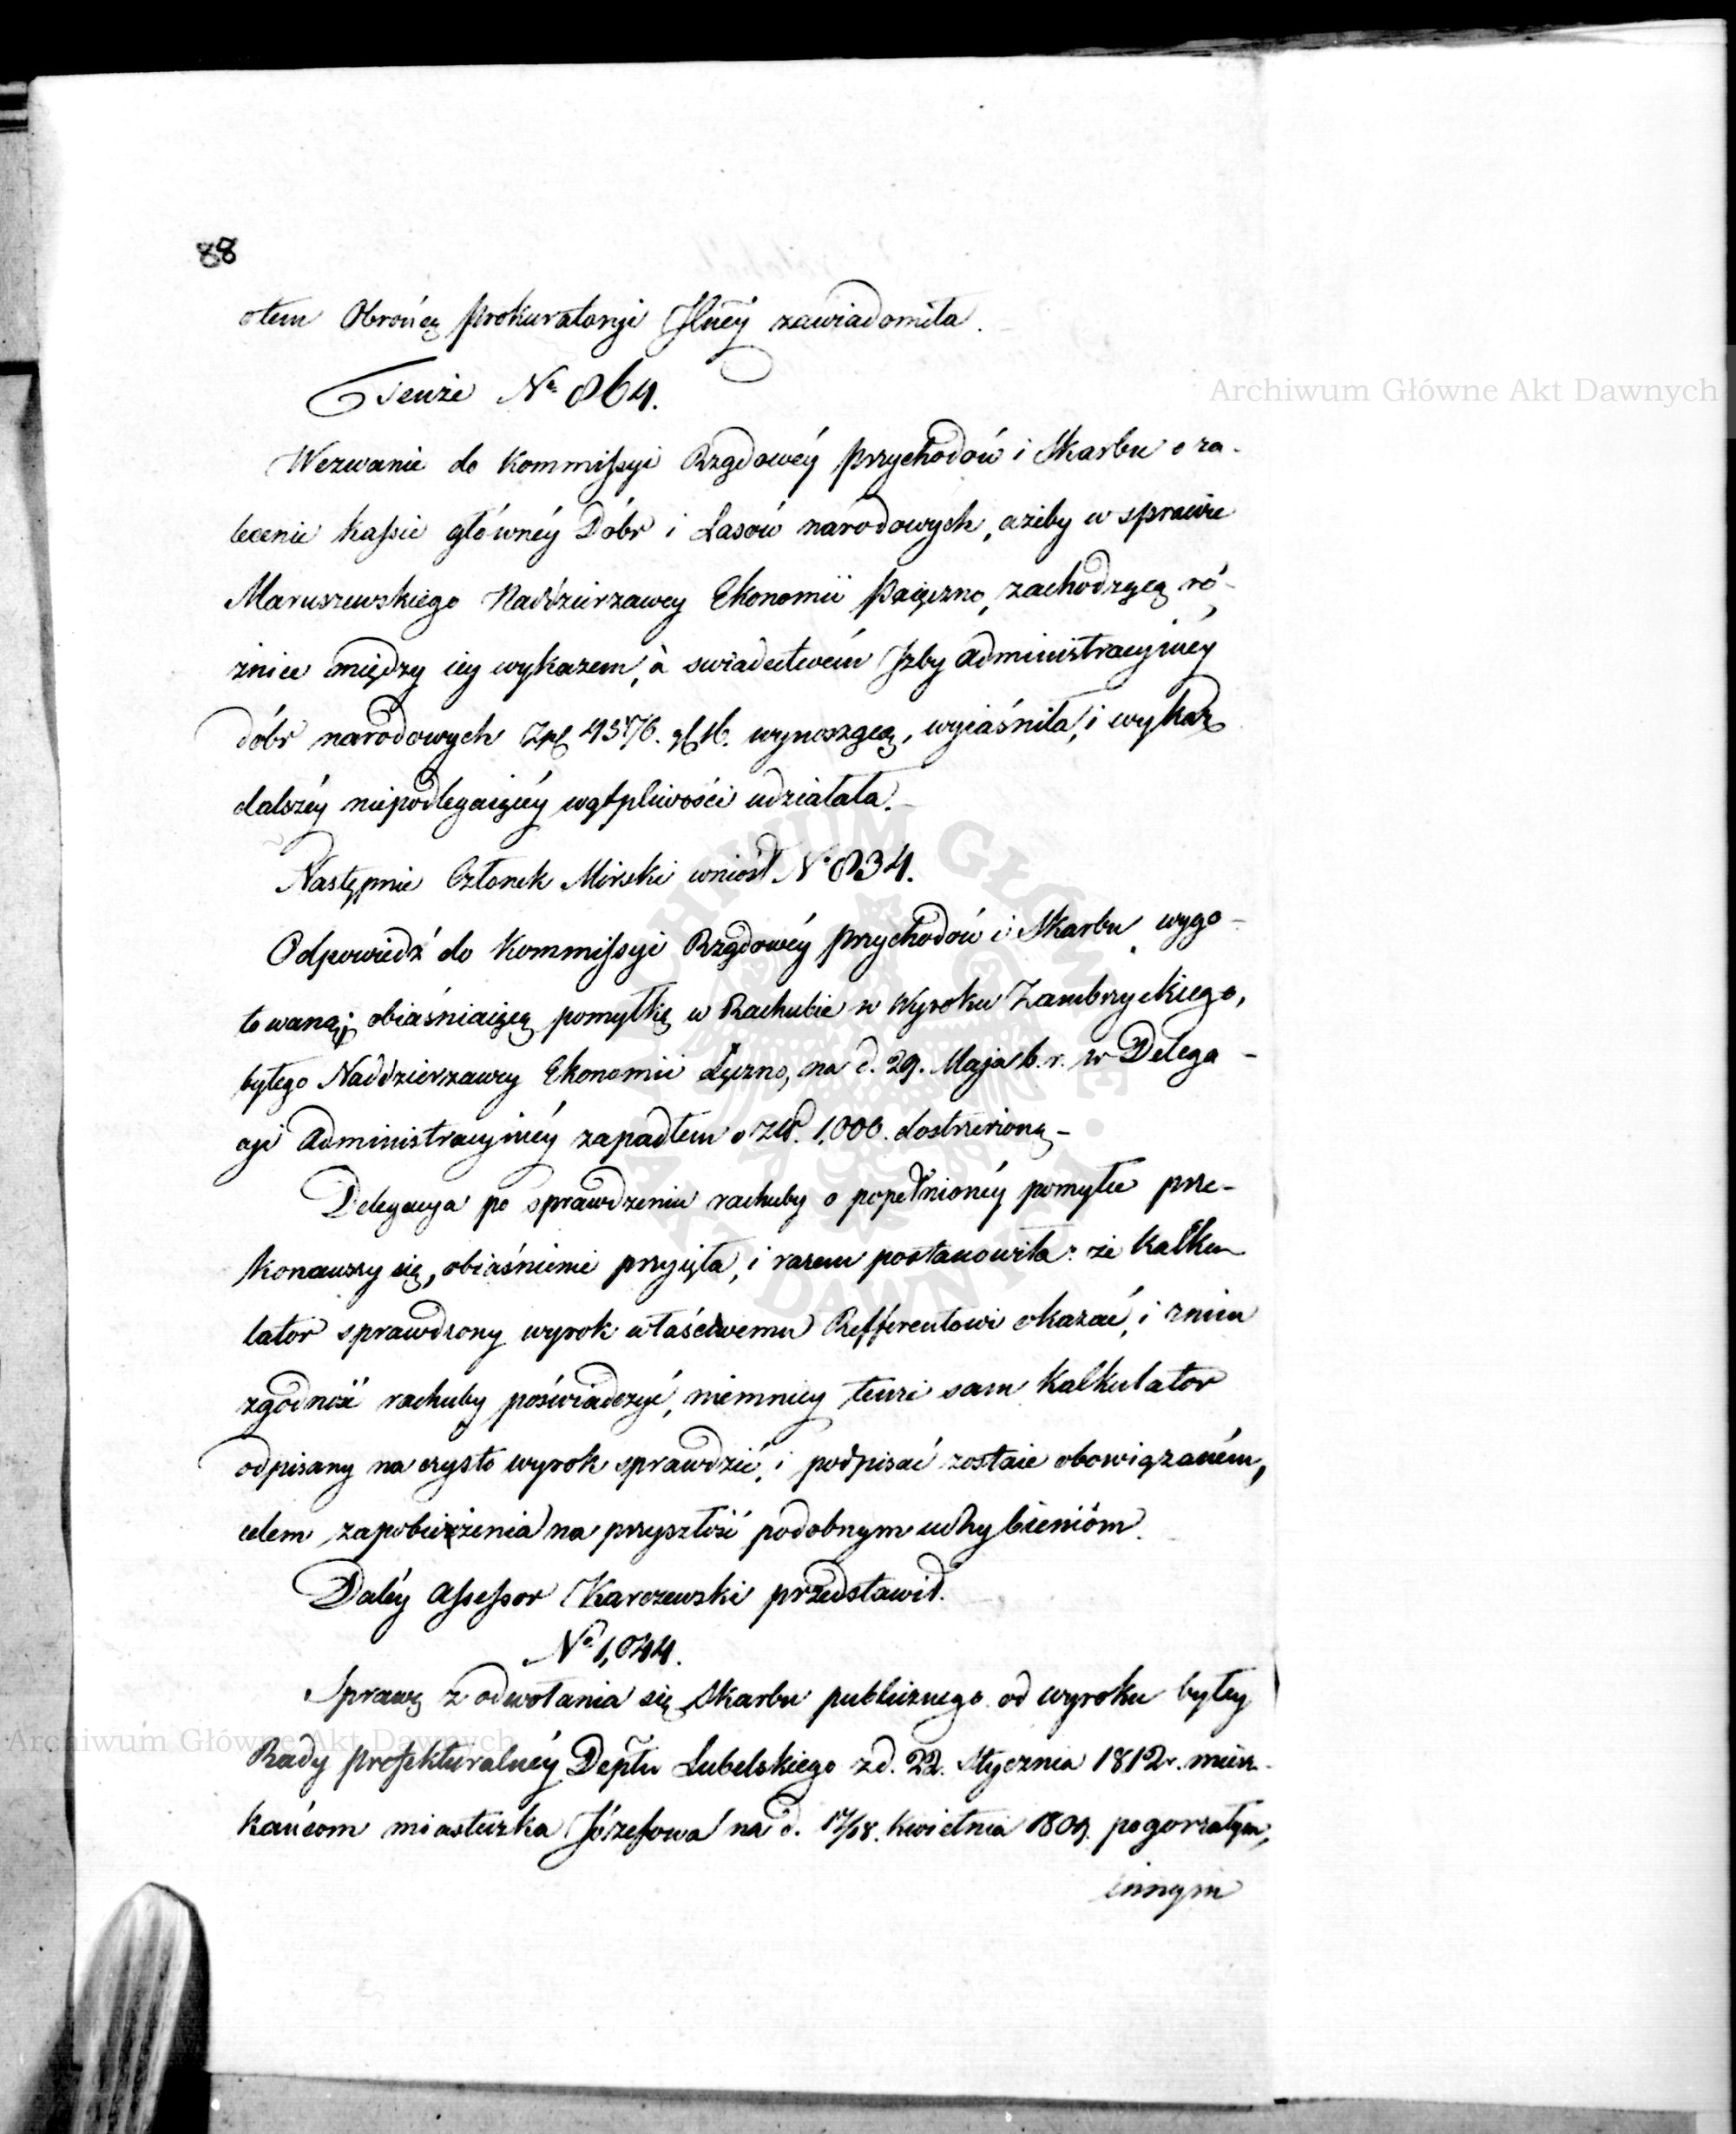 88
otem Obrońcę Prokuratoryi Jlney zawiadomiła.
Tenże No 864.
Wezwanie do Kommissyi Rządowéy Przychodów i Skarbu o za-
lecenie Kassie głównéy Dóbr i Lasów narodowych, ażeby w sprawie
Maruszewskiego Naddzierżawcy Ekonomii Paięczno, zachodzącą ró-
żnicę między iey wykazem, à swiadectwem Jzby Administracyinéy
dóbr narodowych Zpł 4576. gł 16. wynoszącą, wyiaśniła, i wykaz
dalszéy niepodlegaiącéy wątpliwości udziałała.
Następnie Członek Mirski wniósł No 834.
Odpowiedź do Kommissyi Rządowéy Przychodów i Skarbu wygo-
towaną; obiaśniaiącą pomyłkę w Rachubie w Wyroku Zambrzyckiego,
byłego Naddzierzawcy Ekonomii Łęczno, na d. 29. Maja b.r. w Delega-
cyi Administracyinéy zapadłem o złp. 1,000. dostrzeżoną_
Delegacya po sprawdzeniu rachuby o popełnionéy pomyłce prze-
konawszy się, obiaśnienie przyięła, i razem postanowiła: że Kalku
lator sprawdzony wyrok właściwemu Refferentowi okazać, i z nim
zgodność rachuby poświadczyć, niemniey tenże sam Kalkulator
odpisany na czysto wyrok sprawdzić, i podpisać zostaie obowiązaném,
celem zapobieżenia na przyszłość podobnym uchybieniom.
Daléy Assessor Karczewski przedstawił.
No 1,044.
Sprawę z odwołania się Skarbu publicznego od wyroku byłey
Rady prefekturalnéy Deptu Lubelskiego z d. 22. Stycznia 1812r. miesz-
kańcom miasteczka Józefowa na d. 17/18. Kwietnia 1809. pogorzałym,
innym
Archiwum Główne Akt Dawnych
Archiwum Główne Akt Dawnych
ARCHIWUM GŁÓWNE AKT DAWNYCH